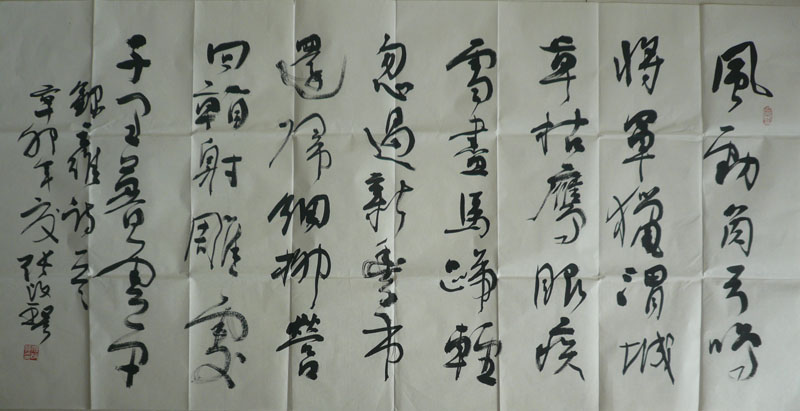 風勁角弓鳴
將軍獵渭城
草枯鷹眼疾
雪盡馬蹄輕
忽過新豐市
還歸細柳營
回頭射雕處
千里暮雲平
錄王維詩一首
辛卯年夏張